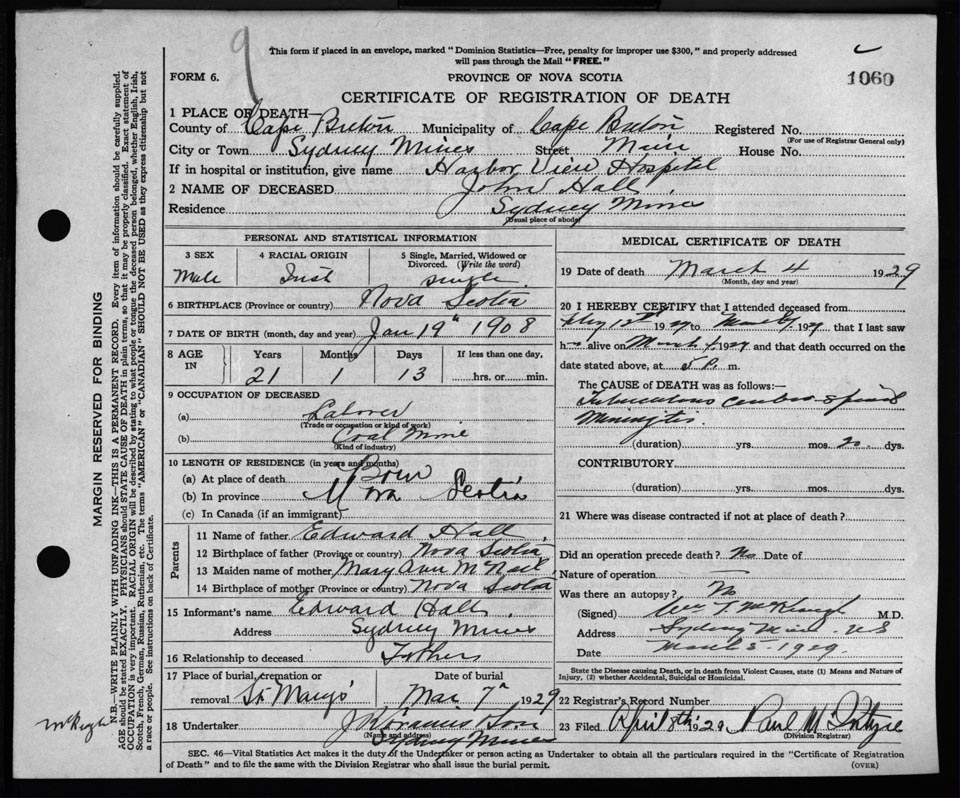 9
This form if placed in an envelope, marked "Dominion Statistics—Free, penalty for improper use $300," and properly addressed
will pass through the Mail "FREE."
FORM 6.
PROVINCE OF NOVA SCOTIA
1060
CERTIFICATE OF REGISTRATION OF DEATH
1 PLACE OF DEATH—
County of Cape Breton Municipality of Cape Breton Registered No.
(For use of Registrar General only)
City or Town Sydney Mines Street Main House No.
If in hospital or institution, give name Harbor View Hospital
2 NAME OF DECEASED John Hall
Residence Sydney Mines
(Usual place of abode)
PERSONAL AND STATISTICAL INFORMATION
3 SEX 4 RACIAL ORIGIN 5 Single, Married, Widowed or
Divorced. (Write the word)
Male Irish single
6 BIRTHPLACE (Province or country) Nova Scotia
7 DATE OF BIRTH (month, day and year) Jan 19th 1908
8 AGE IN Years Months Days If less than one day,
21 1 13 hrs. or min.
9 OCCUPATION OF DECEASED
(a) Laborer
(Trade or occupation or kind of work)
(b) Coal Mine
(Kind of industry)
10 LENGTH OF RESIDENCE (in years and months)
(a) At place of death Born
(b) In province Nova Scotia
(c) In Canada (if an immigrant)
Parents
11 Name of father Edward Hall
12 Birthplace of father (Province or country) Nova Scotia
13 Maiden name of mother Mary Ann McNeil
14 Birthplace of mother (Province or country) Nova Scotia
15 Informant's name Edward Hall
Address Sydney Mines
16 Relationship to deceased Father
17 Place of burial, cremation or
removal St Marys Mar 7th 1929
18 Undertaker Son
(Name and address)
Sydney Mines
MEDICAL CERTIFICATE OF DEATH
19 Date of death March 4 1929
(Month, day and year)
20 I HEREBY CERTIFY that I attended deceased from
12th 19 to 19 that I last saw
h alive on 19 and that death occurred on the
date stated above, at 5 P. m.
The CAUSE OF DEATH was as follows:
Tuberculous cerebro spinal
Meningitis.
(duration) yrs. mos. 20 dys.
CONTRIBUTORY
(duration) yrs. mos. dys.
21 Where was disease contracted if not at place of death?
Did an operation precede death? No Date of
Nature of operation
Was there an autopsy? No
(Signed) Wm T. McKeough M.D.
Address Sydney Mines N S
Date March 5 - 1929.
State the Disease causing Death, or in death from Violent Causes, state (1) Means and Nature of
Injury, (2) whether Accidental, Suicidal or Homicidal.
22 Registrar's Record Number
23 Filed April 8th 1929 Paul McIntyre
(Division Registrar)
SEC. 46—Vital Statistics Act makes it the duty of the Undertaker or person acting as Undertaker to obtain all the particulars required in the "Certificate of Registration
of Death" and to file the same with the Division Registrar who shall issue the burial permit.
(OVER)
MARGIN RESERVED FOR BINDING
N.B.—WRITE PLAINLY WITH UNFADING INK—THIS IS A PERMANENT RECORD. Every item of information should be carefully supplied.
AGE should be stated EXACTLY. PHYSICIANS should STATE CAUSE OF DEATH in plain terms, so that it may be properly classified. Exact statement of
OCCUPATION is very important. RACIAL ORIGIN will be described by stating to what people or tongue the deceased person belonged, whether English, Irish,
Scotch, French, German, Russian, Ruthenian, etc. The terms "AMERICAN" or "CANADIAN" SHOULD NOT BE USED as they express citizenship but not
a race or people. See instructions on back of Certificate.